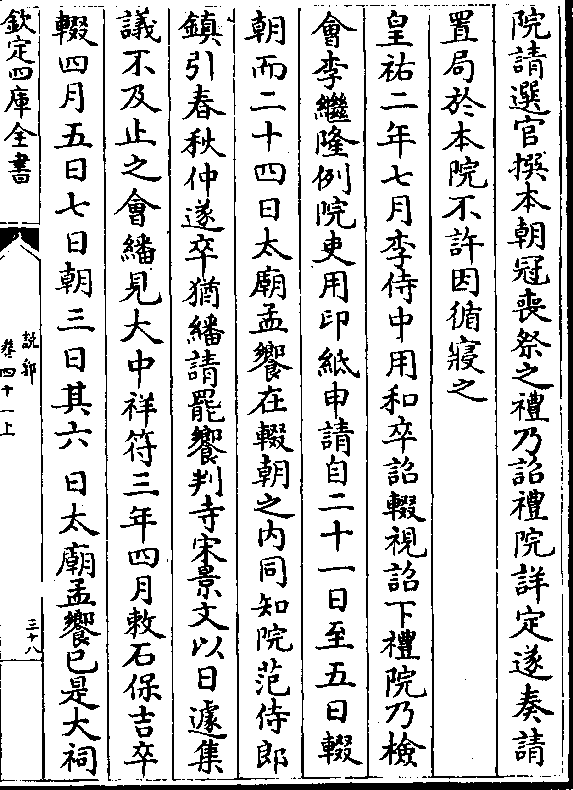 院請選官撰本朝冠喪祭之禮乃詔禮院詳定遂奏請
置局於本院不許因循寢之
皇祐二年七月李侍中用和卒詔輟視詔下禮院乃檢
會李繼隆例院吏用印紙申請自二十一日至五日輟
朝而二十四日太廟孟饗在輟朝之内同知院范侍郎
鎮引春秋仲遂卒猶繙請罷饗判寺宋景文以日遽集
議不及止之會繙見大中祥符三年四月敕石保吉卒
輟四月五日七日朝三日其六日太廟孟饗已是大祠
欽定四庫全書
説郛
卷四十一上
三十八